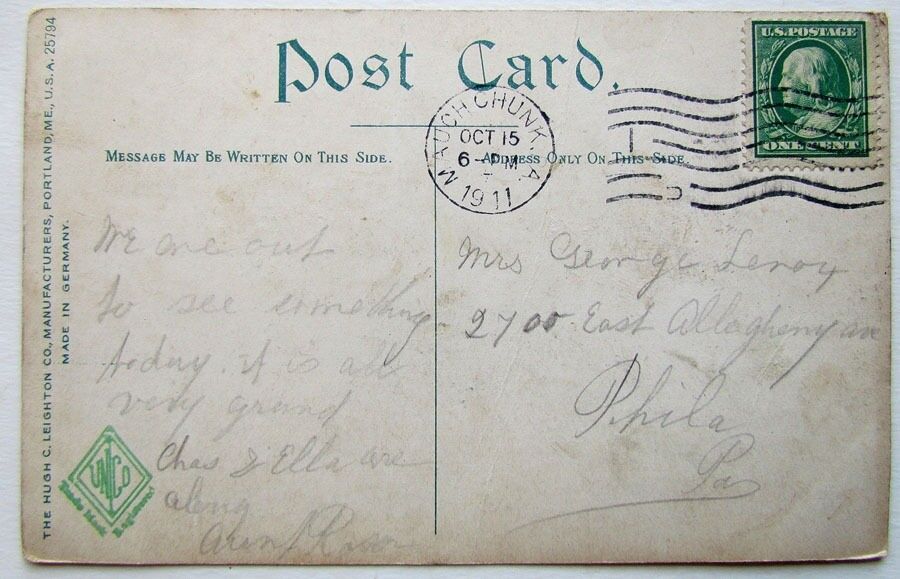 Post Card.
MESSAGE MAY BE WRITTEN ON THIS SIDE.
ADDRESS ONLY ON THIS SIDE
U.S. POSTAGE
ONE CENT
MAUCH CHUNK, A.
OCT 15
6-PM
1911
THE HUGH C. LEIGHTON CO., MANUFACTURERS, PORTLAND, ME., U.S.A. 25794
MADE IN GERMANY.
We are out
to see something
today. it is all
very grand
Chas & Ella are
along
UNCO
Trade Mark
Registered
Mrs George Leroy
2700 East Allagheny ave
Phila
Pa